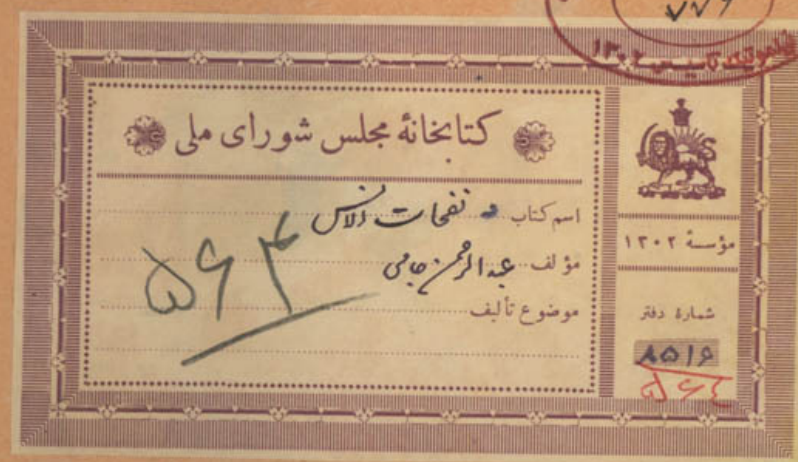 ۷۷۶
تأسیس ۱۳۰۲
کتابخانهٔ مجلس شورای ملی
اسم کتاب نفحات الانس
مؤلف عبدالرحمن جامی
موضوع تألیف
۵۶۴
مؤسسهٔ ۱۳۰۲
شمارهٔ دفتر
۸۵۱۶
۵۶۴